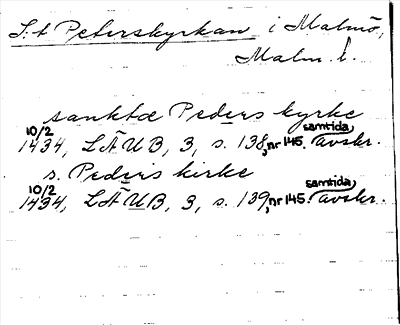 S:t Peterskyrkan i Malmö,
Malm. l.
sanktæ Peders kyrke
10/2 1434, LÄUB, 3, s. 138, nr 145. samtida avskr.
s. Peders kirke
10/2 1434, LÄUB, 3, s. 139, nr 145. samtida avskr.